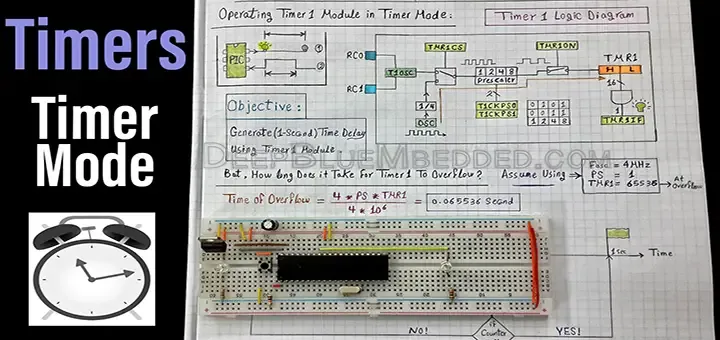 Timers
Timer
Mode
Operating Timer1 Module in Timer Mode:
Timer 1 Logic Diagram
PIC
1
2
RC0
RC1
T1OSC
TMR1CS
TMR1ON
TMR1
H L
1 2 4 8
Prescaler
1/4
OSC
2
T1CKPS0 0 1 0 1
T1CKPS1 0 0 1 1
1 2 4 8
16
1
TMR1IF
Objective:
Generate (1-Second) Time Delay
Using Timer1 Module.
DeepBlueMbedded.com
But, How long Does it Take For Timer1 To Overflow?
Assume Using
Fosc = 4MHz
PS = 1
TMR1 = 65536
At
Overflow
Time of Overflow = 4 * PS * TMR1
4 * 10⁶
= 0.065536 Second
1sec
Time
NO!
if
Counter
YES!